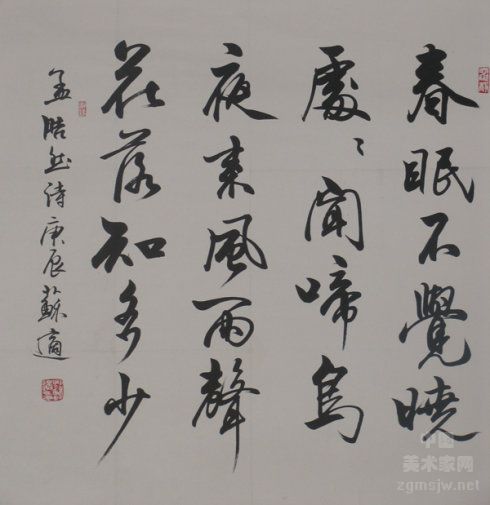 春眠不覺曉
處〻聞啼鳥
夜来風雨聲
花落知多少
孟浩然诗庚辰蘇適
中国
美术家网
zgmsjw.net